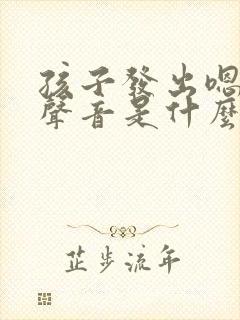 孩子發出嗯
聲音是什麼
芷步流年